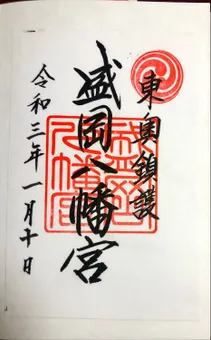 東奥鎮護
盛岡八幡宮
令和三年一月十日